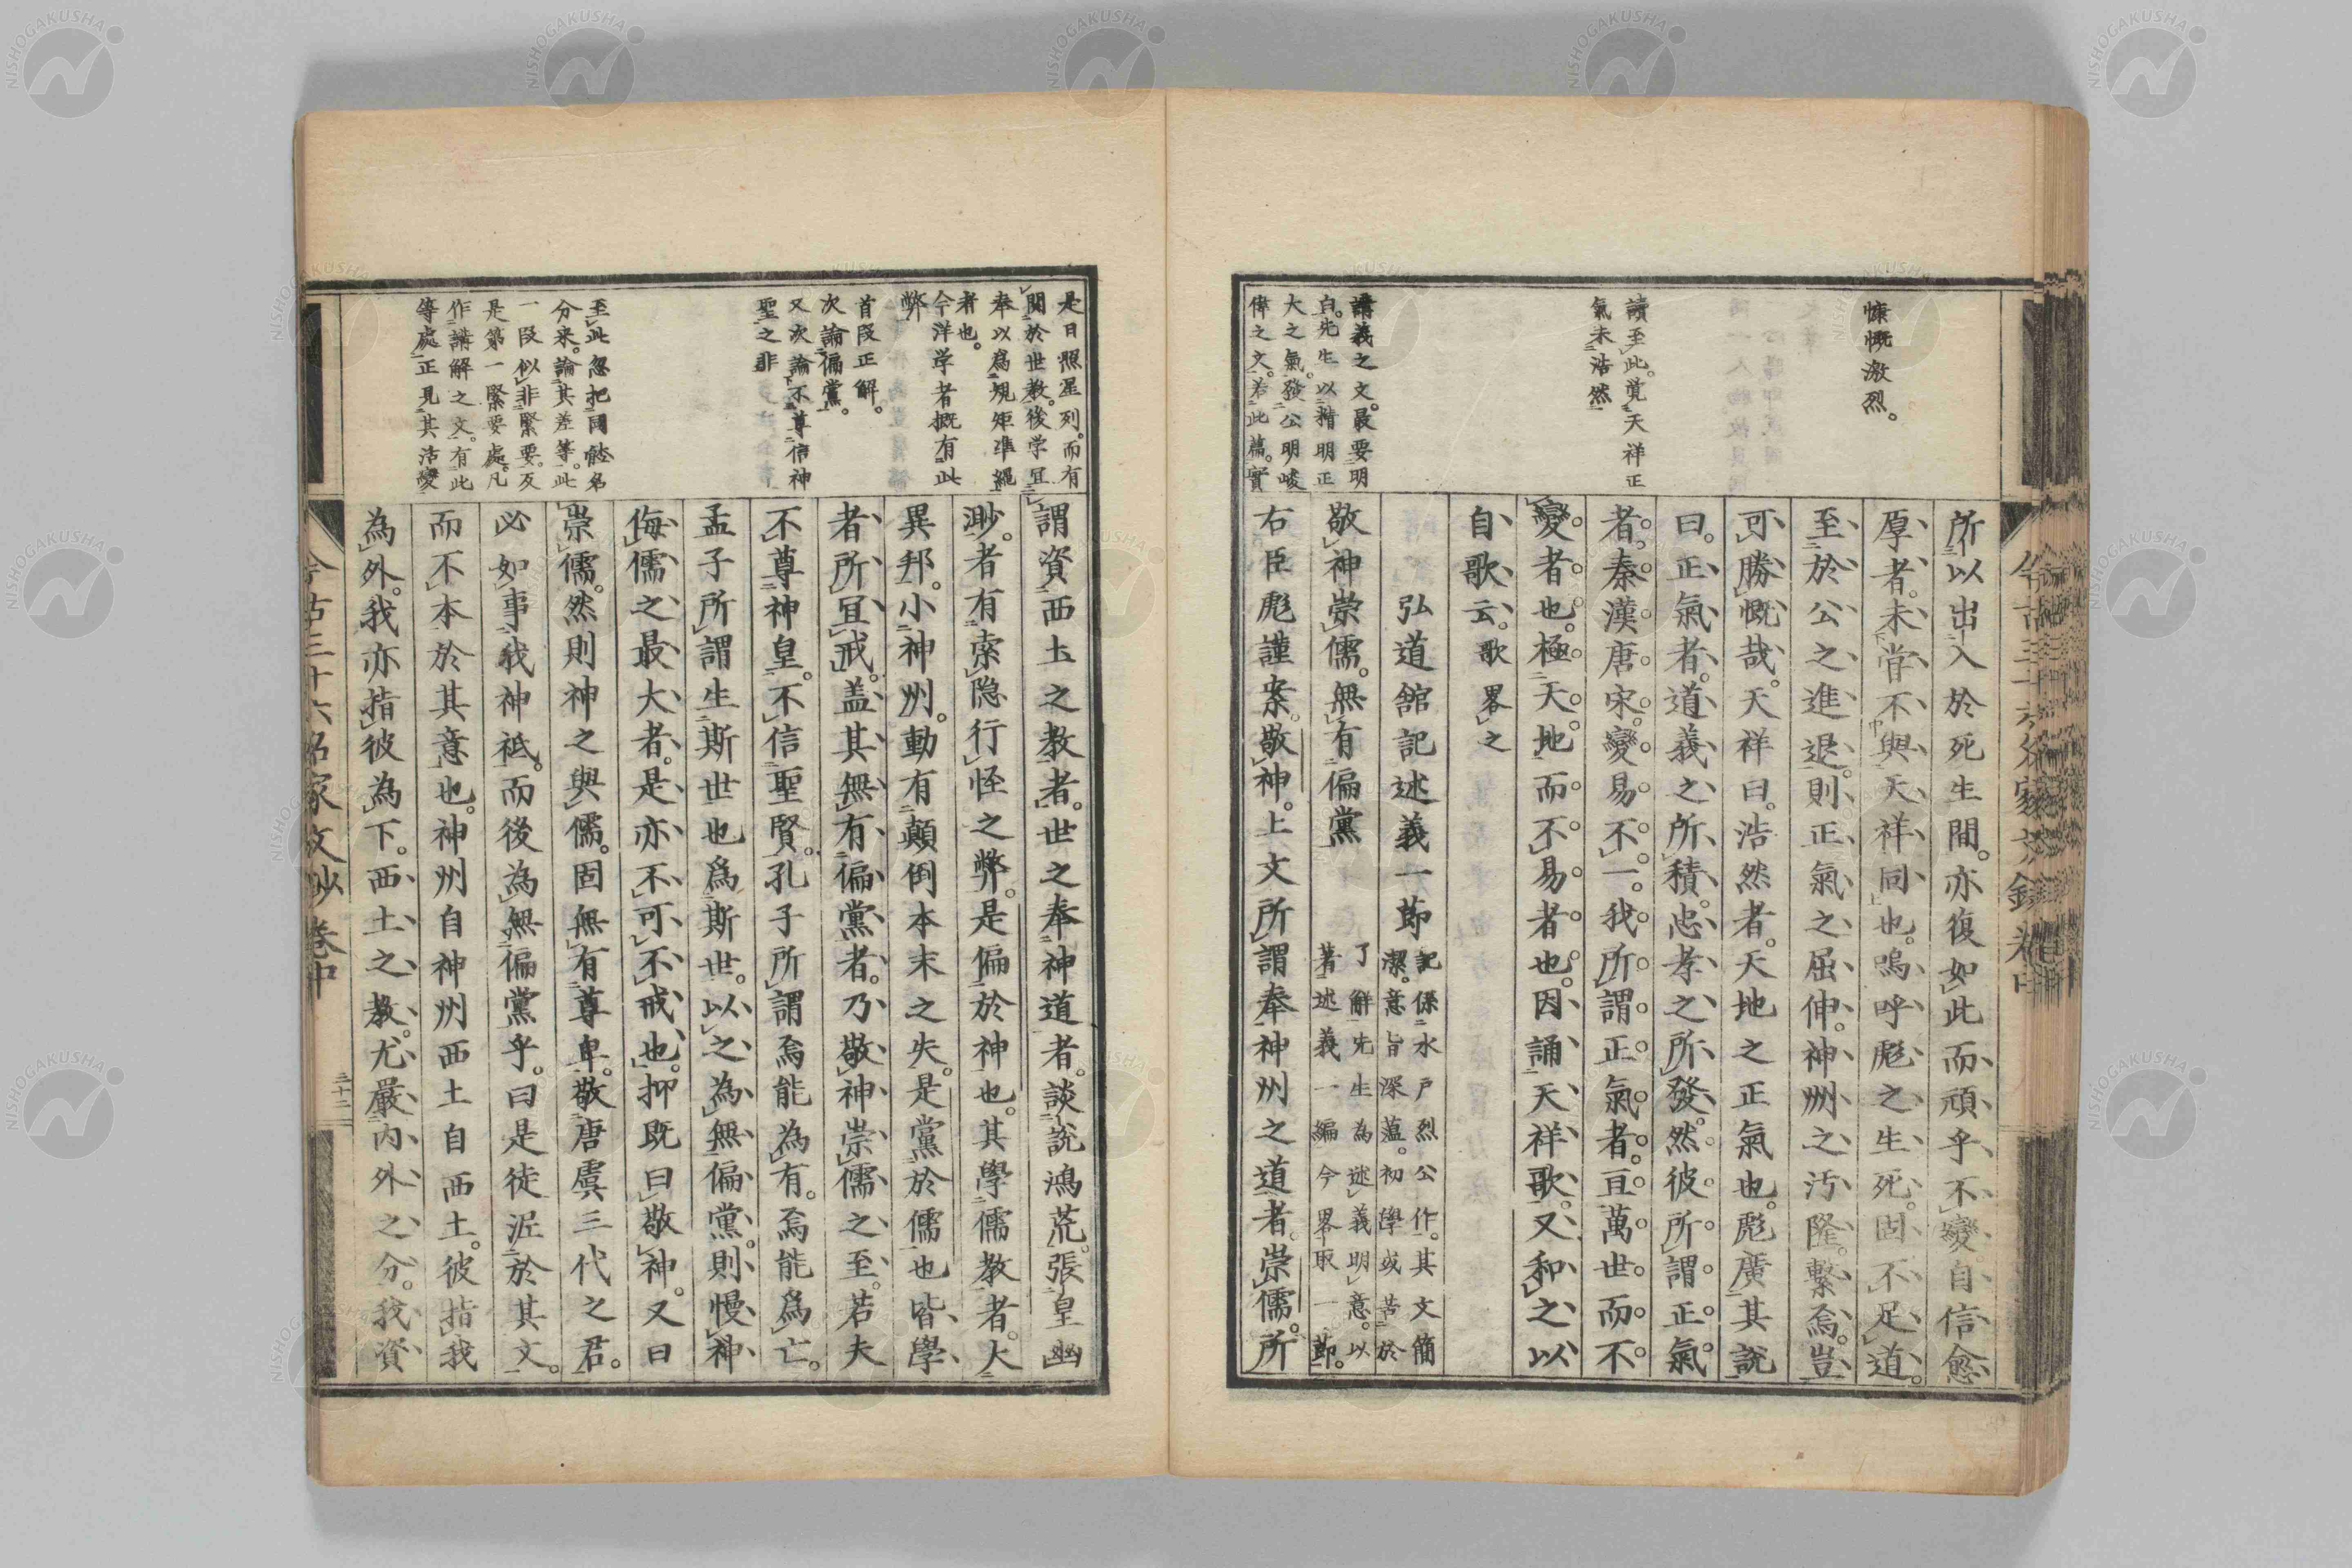 慷慨激烈。
讀至此。覺天祥正
氣未浩然
講義之文。最要明
白。先生以精明正
大之氣。發公明峻
偉之文。若此篇。實
所以出入於死生間。亦復如此而頑乎不變。自信愈
厚者。未甞不與天祥同也。嗚呼彪之生死。固不足道。
至於公之進退。則正氣之屈伸。神州之汚隆繫焉。豈
可勝慨哉。天祥曰。浩然者。天地之正氣也。彪廣其說
曰。正氣者。道義之所積。忠孝之所發。然彼所謂正氣
者。秦漢唐宋。變易不一。我所謂正氣者。亘萬世而不
變者也。極天地而不易者也。因誦天祥歌。又和之以
自歌云。歌畧之
弘道館記述義一節
記係水戸烈公作。其文簡
潔。意旨深薀。初學或苦於
了解先生為述義明意。以
著述義一編今畧取一節。
敬神崇儒。無有偏黨
右臣彪謹案。敬神。上文所謂奉神州之道者。崇儒。所
今古三十六名家文鈔卷中
是日照星列。而有
関於世教。後学宜
奉以爲規矩準繩
者也。
今洋学者概有此
弊
首段正解。
次論偏黨。
又次論不尊信神
聖之非
至此忽把同飴名
分来。論其差等。此
一段似非緊要。反
是第一緊要處。凡
作講解之文。有此
等處。正見其活變
謂資西土之教者。世之奉神道者。談説鴻荒。張皇幽
渺。者有索隠行怪之弊。是偏於神也。其學儒教者。大
異邦。小神州。動有顛倒本末之失。是黨於儒也。皆學
者所宜戒。盖其無有偏黨者。乃敬神崇儒之至。若夫
不尊神皇。不信聖賢。孔子所謂焉能為有。焉能爲亡。
孟子所謂生斯世也爲斯世。以之為無偏黨。則慢神
侮儒之最大者。是亦不可不戒也。抑既曰敬神。又曰
崇儒。然則神之與儒。固無有尊卑。敬唐虞三代之君。
必如事我神祇。而後為無偏黨乎。曰是徒泥於其文。
而不本於其意也。神州自神州西土自西土。彼指我
為外。我亦指彼為下。西土之教。尤嚴内外之分。我資
今古三十六名家文鈔卷中
三十二